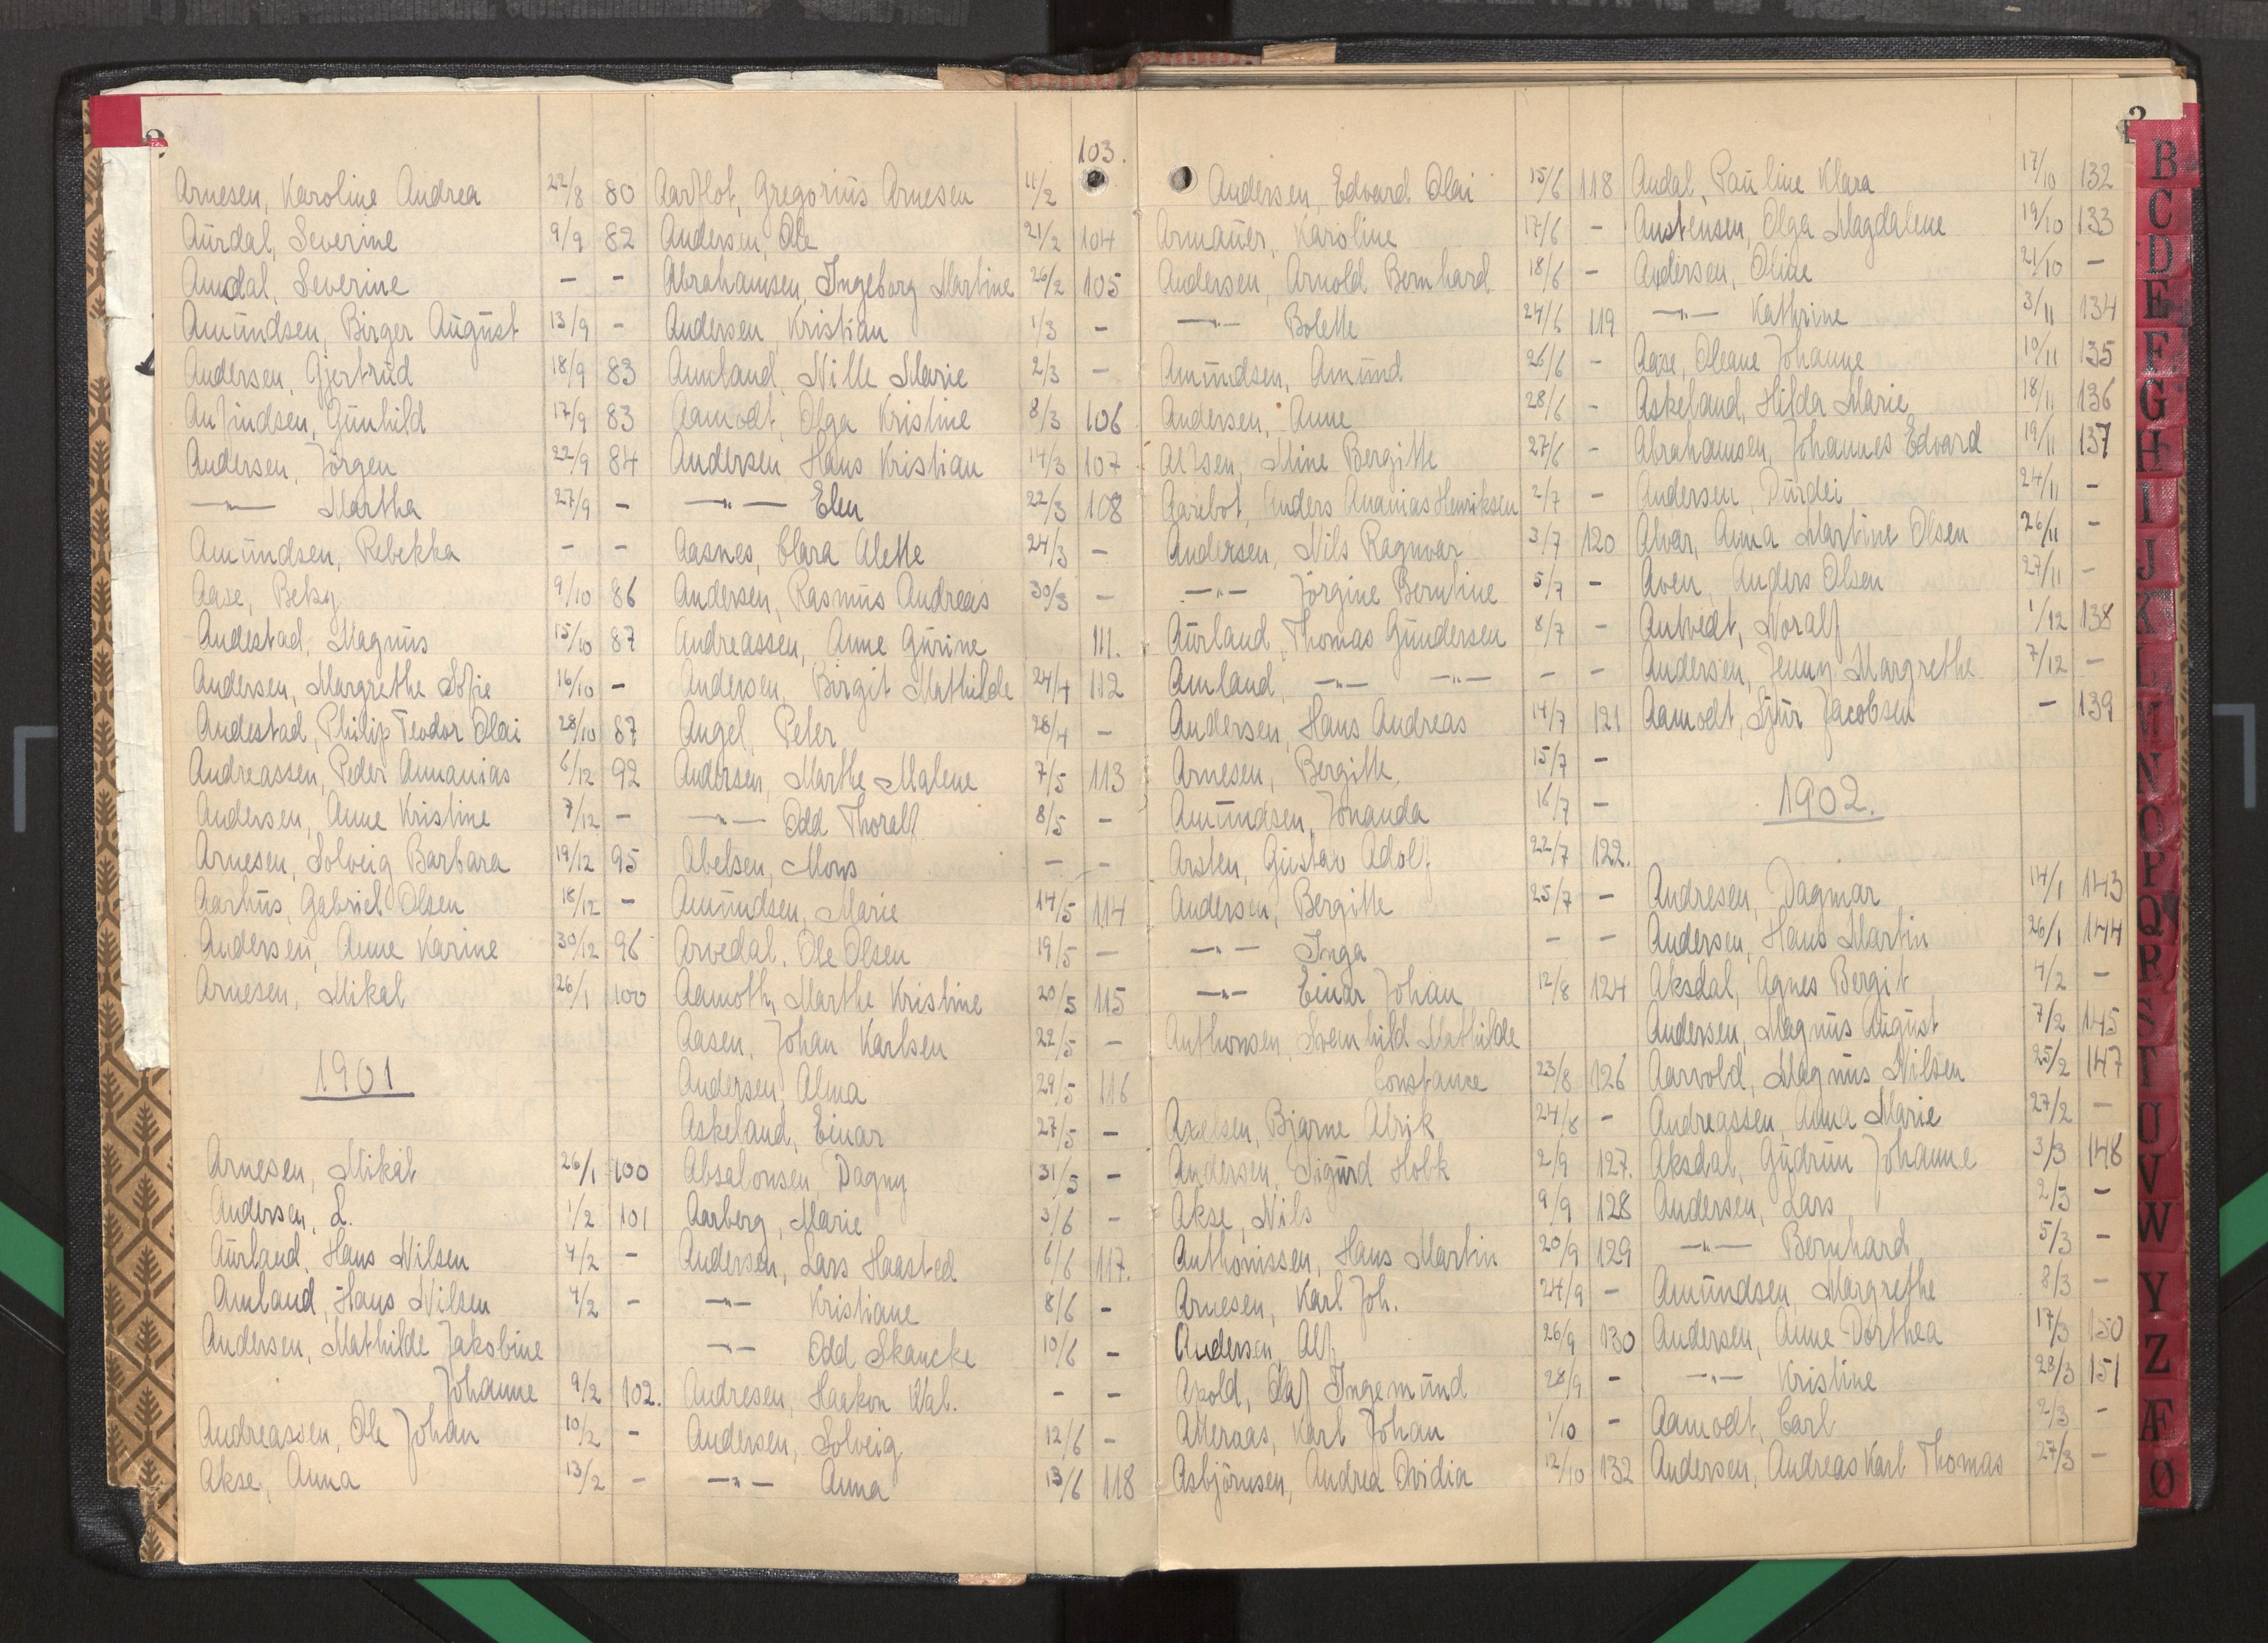 Arnesen, Karoline Andrea 22/8 80
Aurdal, Severine 9/9 82
Amdal, Severine - -
Amundsen, Birger August 13/9 -
Andersen, Gjertrud 18/9 83
Anfindsen, Gunhild 17/9 83
Andersen, Jörgen 22/9 84
—"— Martha 27/9 -
Amundsen, Rebekka - -
Aase, Beky 9/10 86
Andestad, Magnus 15/10 87
Andersen, Margrethe Sofie 16/10 -
Andestad, Philip Teodor Olai 28/10 87
Andreassen, Peder Annanias 6/12 92
Andersen, Anne Kristine 7/12 -
Arnesen, Solveig Barbara 19/12 95
Aarhus, Gabriel Olsen 18/12 -
Andersen, Anne Karine 30/12 96
Arnesen, Mikal 26/1 100
1901
Arnesen, Mikal 26/1 100
Andersen, L. 1/2 101
Aurland, Hans Nilsen 4/2 -
Amland, Hans Nilsen 4/2 -
Andersen, Mathilde Jakobine
Johanne 9/2 102.
Andreassen, Ole Johan 10/2 -
Akse, Anna 13/2 -
103.
Aarflot, Gregorius Arnesen 11/2
Andersen, Ole 21/2 104
Abrahamsen, Ingeborg Martine 26/2 105
Andersen, Kristian 1/3 -
Amland, Nille Marie 2/3 -
Aamodt, Olga Kristine 8/3 106
Andersen, Hans Kristian 14/3 107
—"— Elen 22/3 108
Aasnes, Clara Alette 24/3 -
Andersen, Rasmus Andreas 30/3 -
Andreassen, Anne Gurine 111.
Andersen, Birgit Mathilde 24/4 112
Angel, Peter 28/4 -
Andersen, Marthe Malene 7/5 113
—"— Odd Thoralf 8/5 -
Abelsen, Mons - -
Amundsen, Marie 14/5 114
Arvedal, Ole Olsen 19/5 -
Aamoth, Marthe Kristine 20/5 115
Aasen, Johan Karlsen 22/5 -
Andersen, Alma 29/5 116
Askeland, Einar 27/5 -
Absalonsen, Dagny 31/5 -
Aarberg, Marie 3/6 -
Andersen, Lars Haasted 6/6 117.
—"— Kristiane 8/6 -
—"— Odd Skancke 10/6 -
Andresen, Haakon Wal. - -
Andersen, Solveig 12/6 -
—"— Anna 13/6 118
Andersen, Edvard Olai 15/6 118
Armauer, Karoline 17/6 -
Andersen, Arnold Bernhard 18/6 -
—"— Bolette 24/6 119
Amundsen, Amund 26/6 -
Andersen, Anne 28/6 -
Mine Bergitte 27/6 -
Aarebot, Anders Ananias Henriksen 2/7 -
Andersen, Nils Ragnvar 3/7 120
—"— Jörgine Berntine 5/7 -
Aurland, Thomas Gundersen 8/7 -
Amland, —"— —"— - -
Andersen, Hans Andreas 14/7 121
Arnesen, Bergitte 15/7 -
Amundsen, Jonanda 16/7 -
Arsten, Gustav Adolf 22/7 122.
Andersen, Bergitte 25/7 -
—"— Inga - -
—"— Einar Johan 12/8 124
Anthonsen, Svemhild Mathilde
Constance 23/8 126
Axelsen, Bjarne Alrik 24/8 -
Andersen, Sigurd Holk 2/9 127.
Akse, Nils 9/9 128
Anthonissen, Hans Martin 20/9 129
Arnesen, Karl Joh. 24/9 -
Andersen, Alf 26/9 130
Axold, Olaf Ingemund 28/9 -
Atteraas, Karl Johan 1/10 -
Asbjörnsen, Andrea Ovidia 12/10 132
Andal, Pauline Klara 17/10 132
Austensen, Olga Magdalene 19/10 133
Andersen, Oline 21/10 -
—"— Kathrine 3/11 134
Aase, Oleane Johanne 10/11 135
Askeland, Hilda Marie 18/11 136
Abrahamsen, Johannes Edvard 19/11 137
Andersen, Durdei 24/11 -
Alvar, Anna Martine Olsen 26/11 -
Aven, Anders Olsen 27/11 -
Antvedt, Noralf 1/12 138
Andersen, Jenny Margrethe 7/12 -
Aamodt, Sjur Jacobsen - 139
1902.
Andresen, Dagmar 14/1 143
Andersen, Hans Martin 26/1 144
Aksdal, Agnes Bergit 4/2 -
Andersen, Magnus August 7/2 145
Aarvold, Magnus Nilsen 25/2 147
Andreassen, Anna Marie 27/2 -
Aksdal, Gudrun Johanne 3/3 148
Andersen, Lars 2/3 -
—"— Bernhard 5/3 -
Amundsen, Margrethe 8/3 -
Andersen, Anne Dorthea 17/3 150
—"— Kristine 28/3 151
Aamodt, Carl 2/3 -
Andersen, Andreas Karl Thomas 27/3 -
B
C
D
E
F
G
H
I
J
K
L
M
N
O
P
Q
R
S
T
U
V
W
Y
Z
Æ
Ø